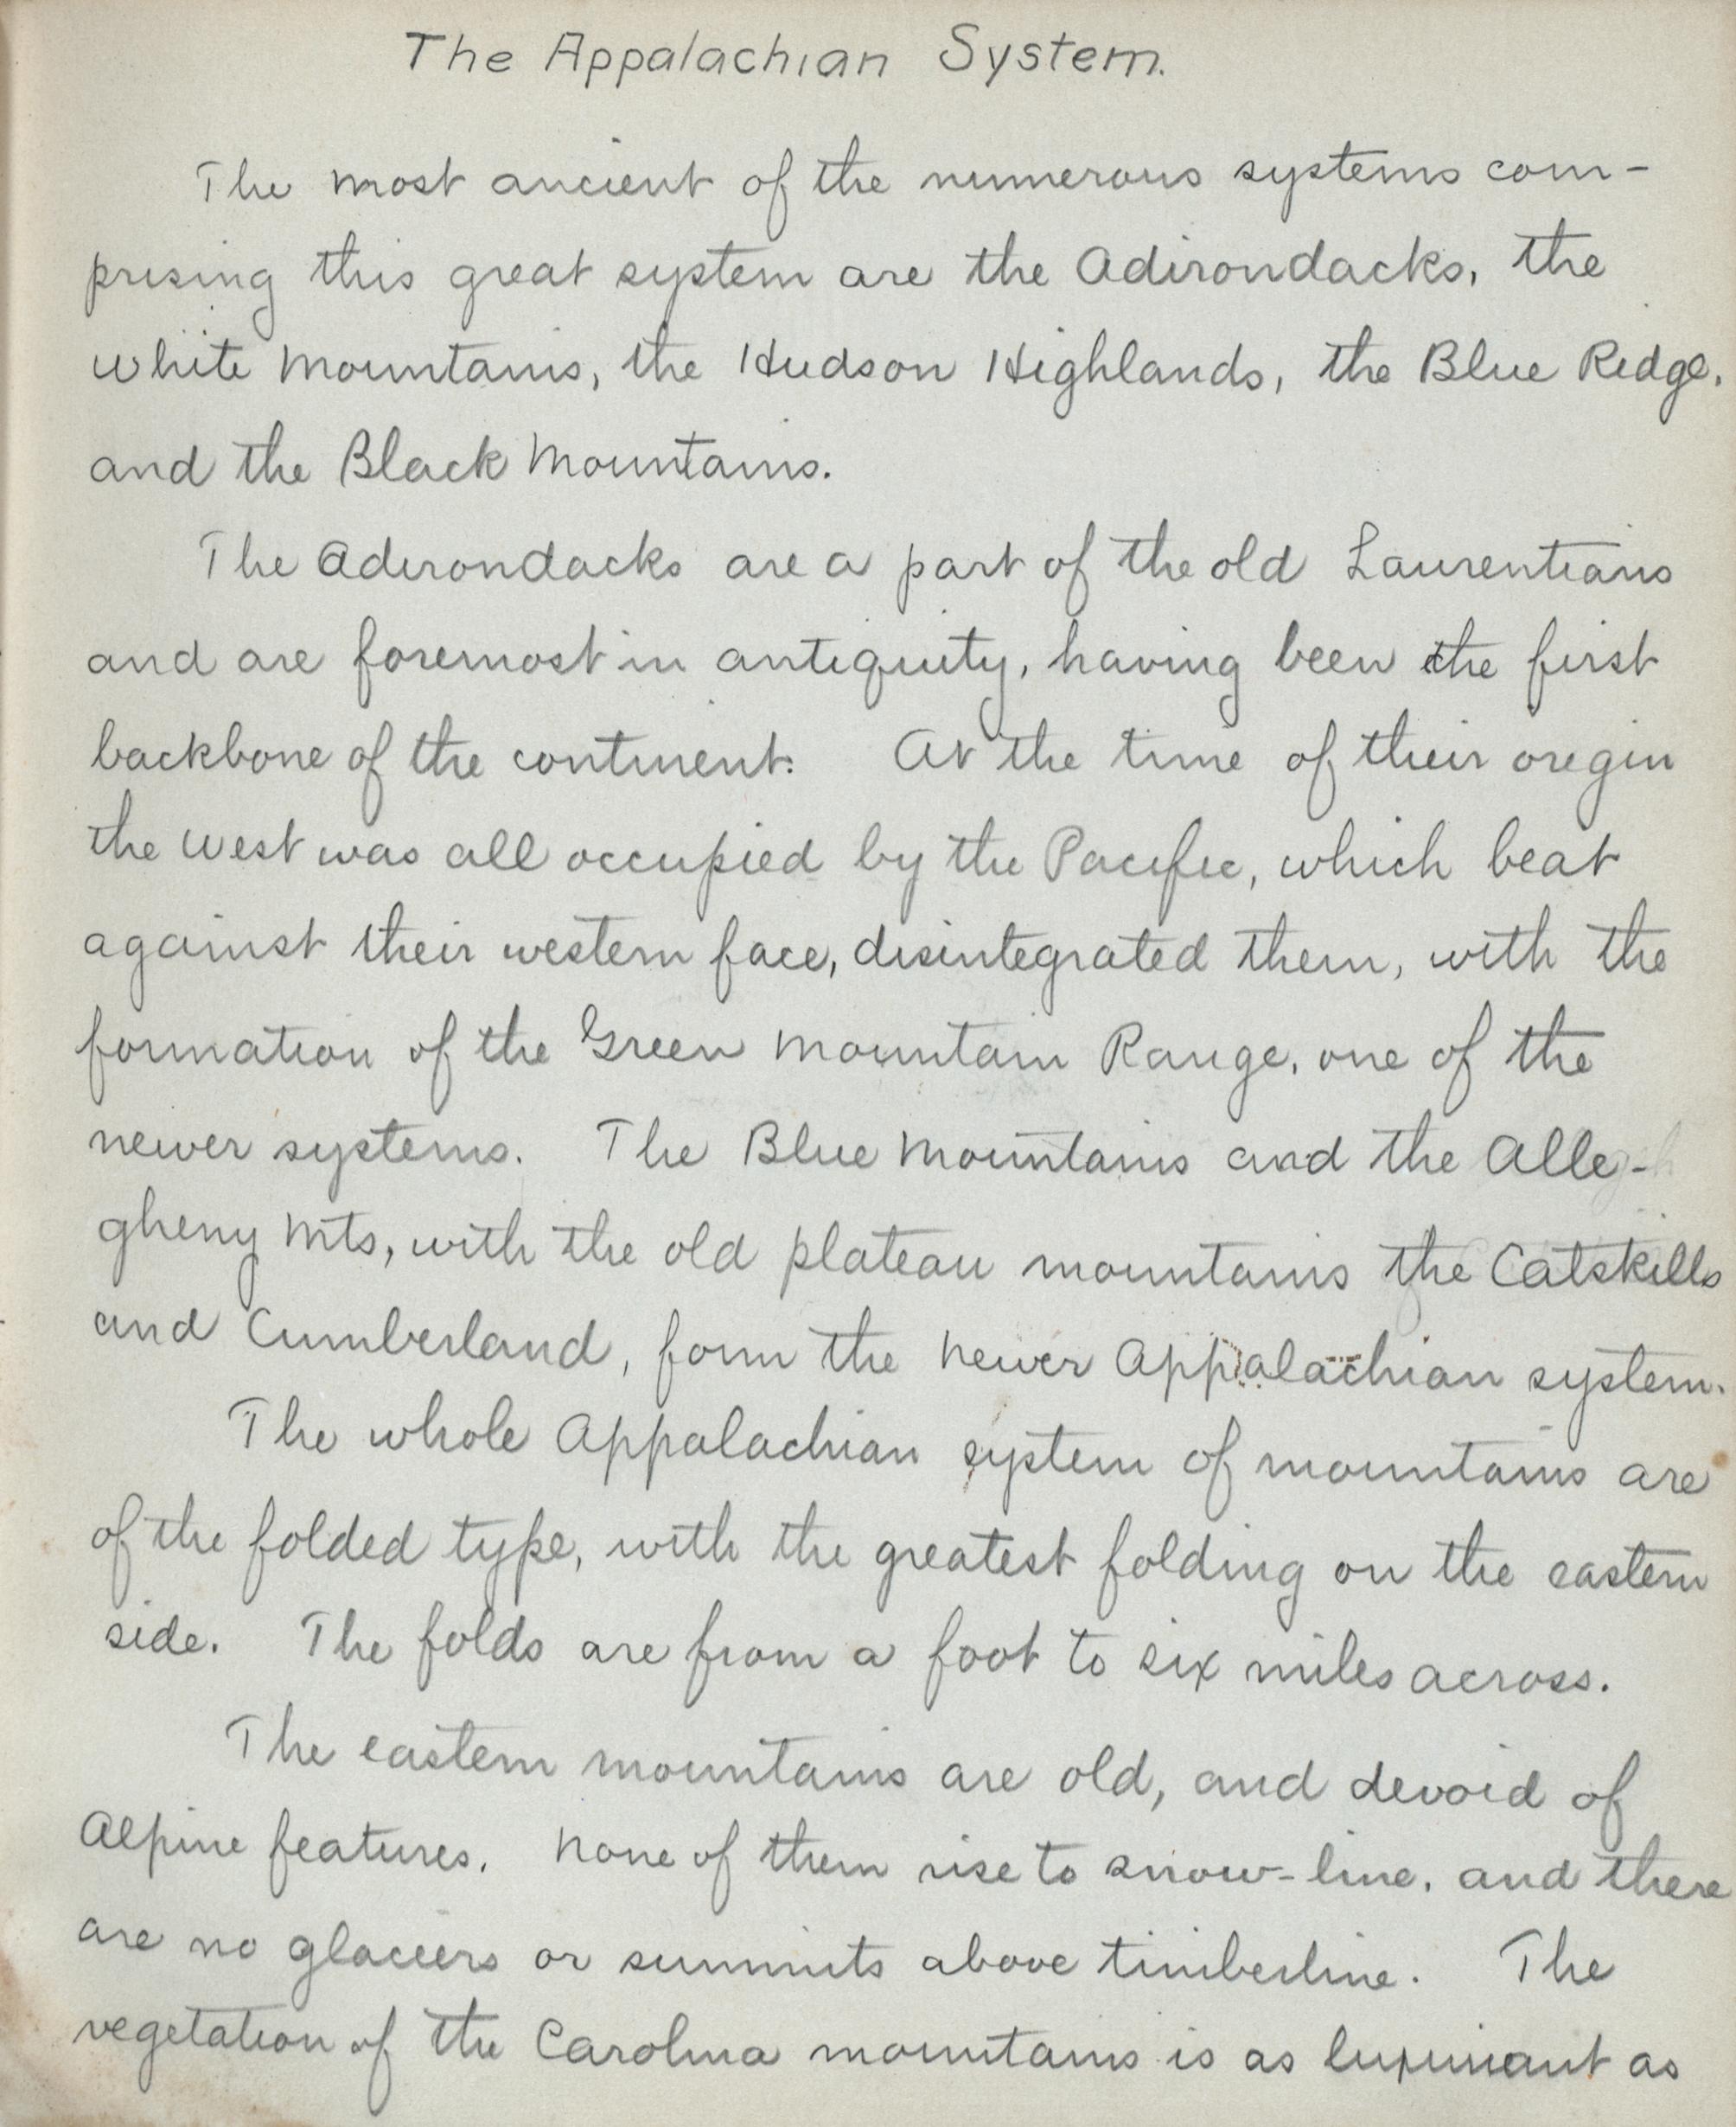 The Appalachian System.
The most ancient of the numerous systems com-
prising this great system are the Adirondacks, the
White Mountains, the Hudson Highlands, the Blue Ridge,
and the Black Mountains.
The Adirondacks are a part of the old Laurentians
and are foremost in antiquity, having been the first
backbone of the continent. At the time of their origin
the West was all occupied by the Pacific, which beat
against their western face, disintegrated them, with the
formation of the Green Mountain Range, one of the
newer systems. The Blue Mountains and the Alle-
gheny Mts, with the old plateau mountains the Catskills
and Cumberland, form the newer Appalachian system.
The whole Appalachian system of mountains are
of the folded type, with the greatest folding on the eastern
side. The folds are from a foot to six miles across.
The eastern mountains are old, and devoid of
Alpine features. None of them rise to snow-line, and there
are no glaciers or summits above timberline. The
vegetation of the Carolina mountains is as luxuriant as